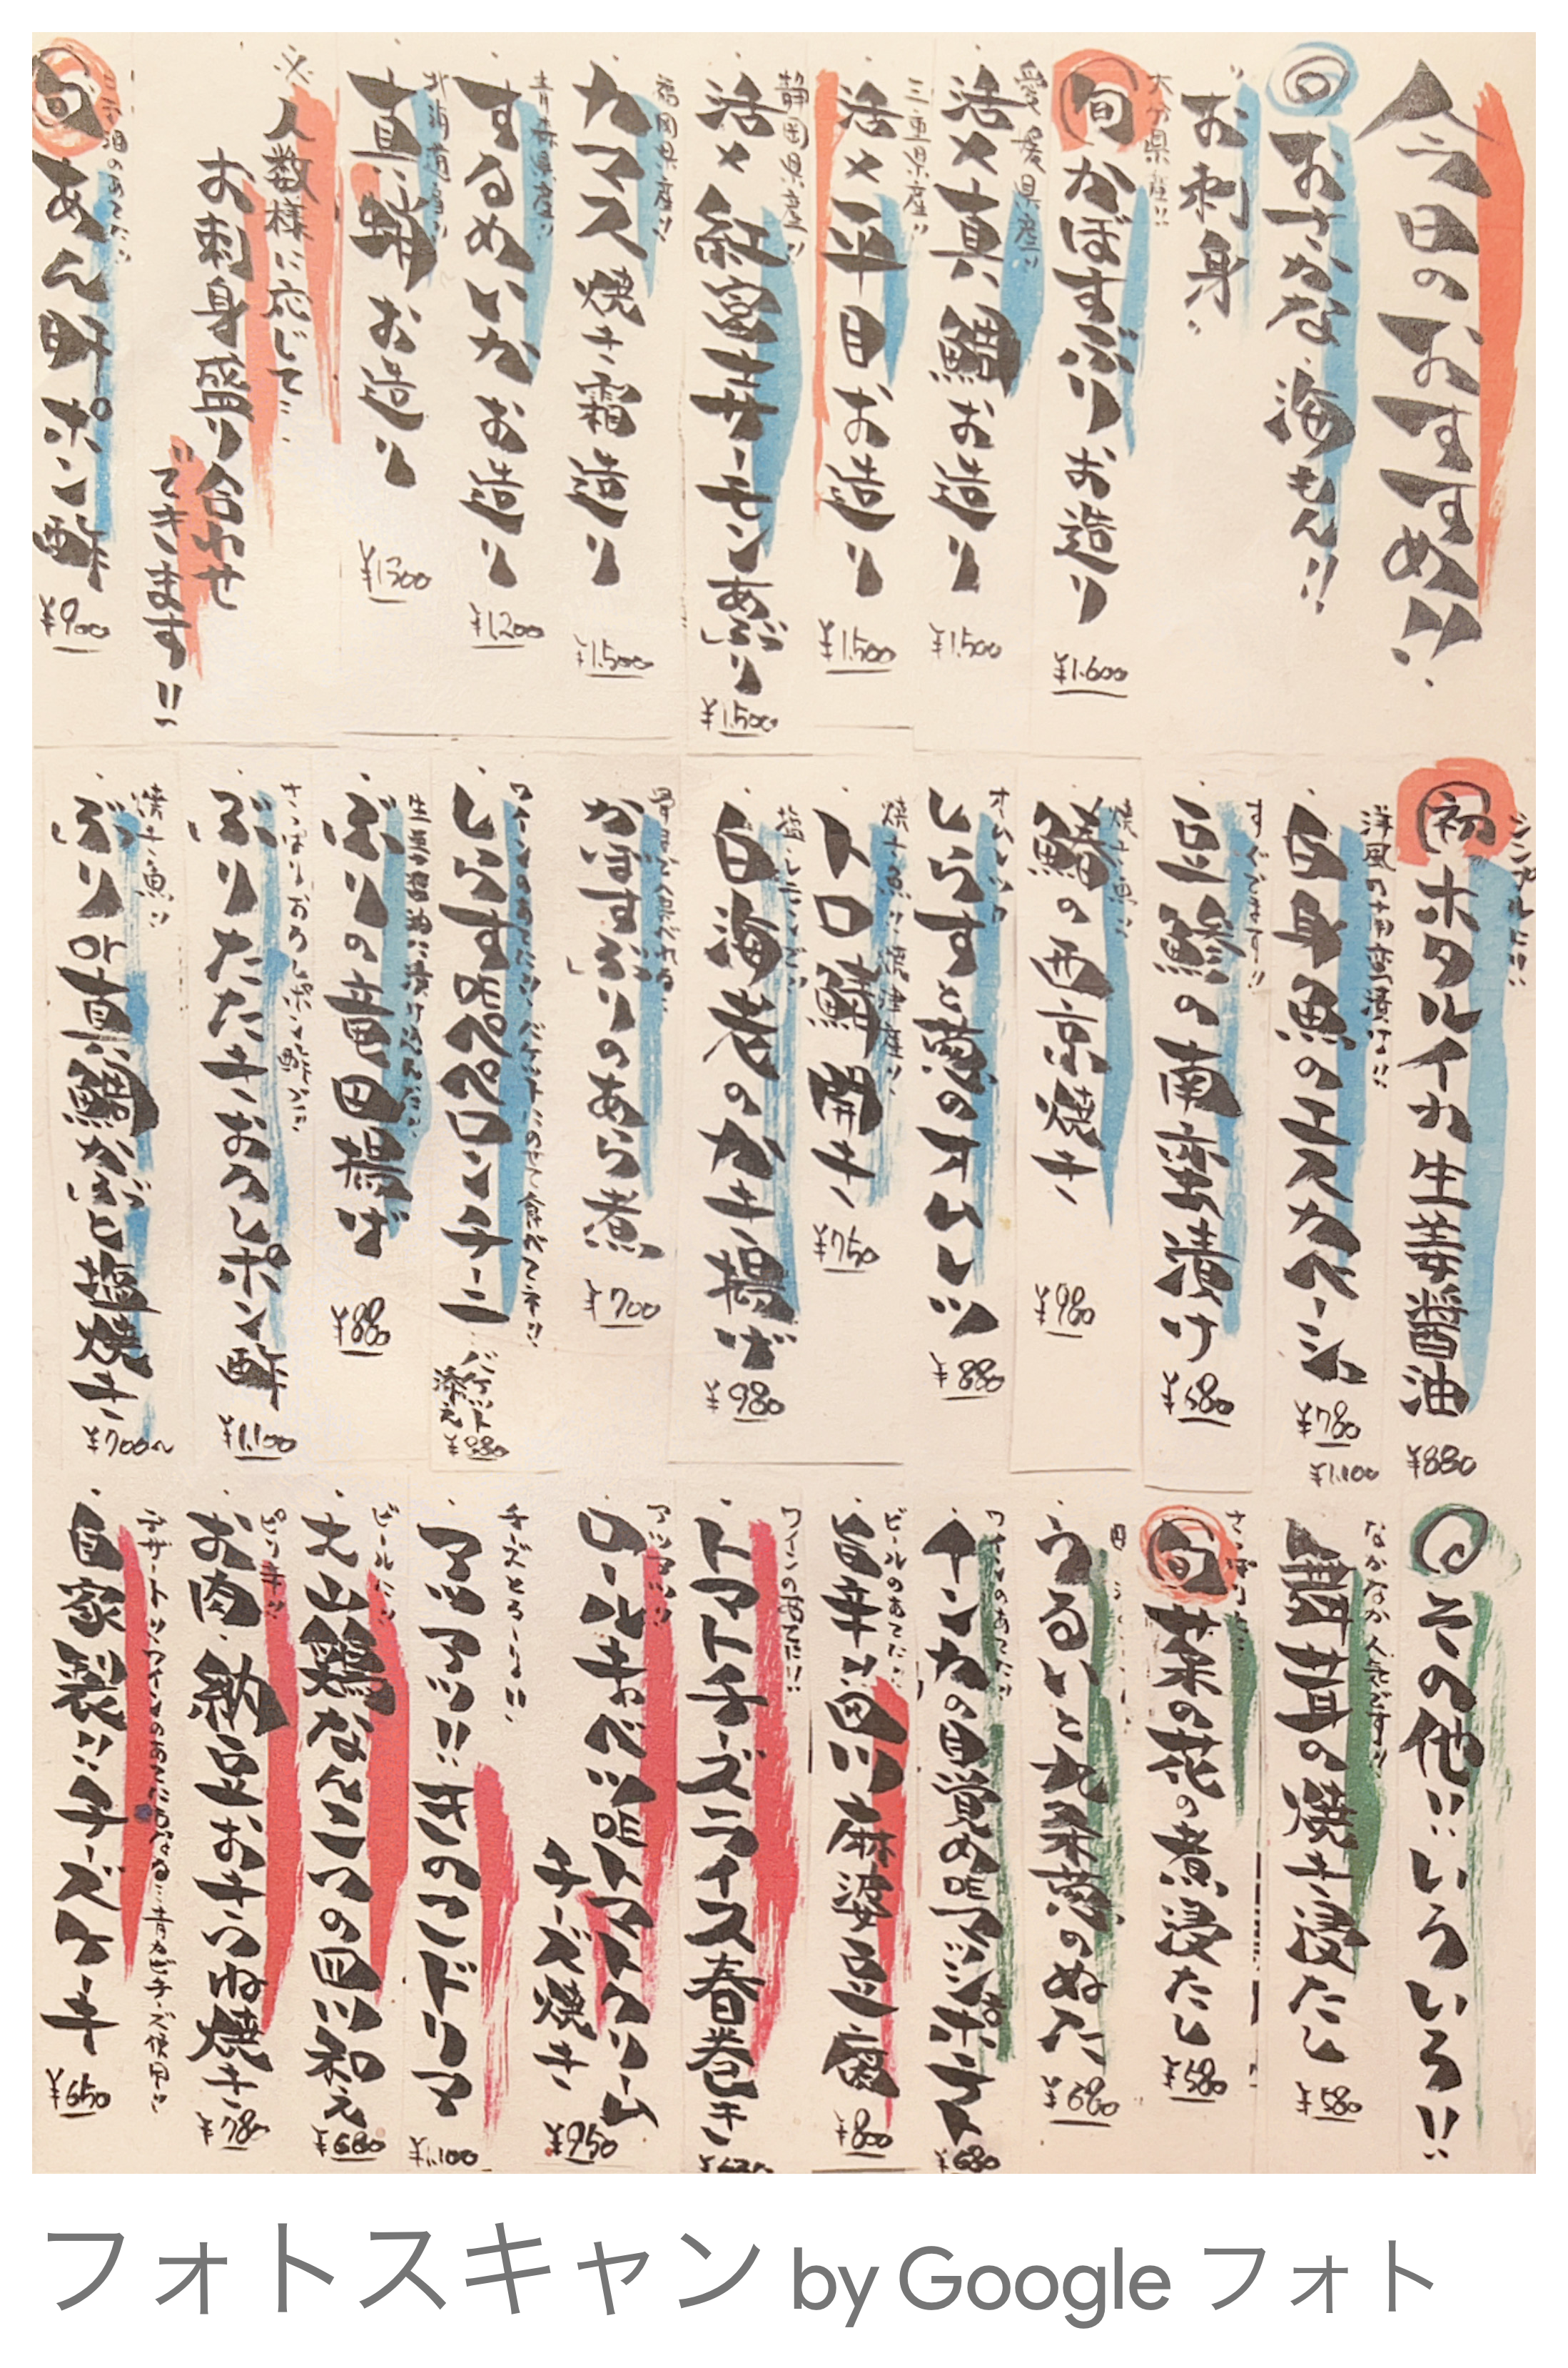 今日のおすすめ!!
おさかな・海もん!!
お刺身
大分県産!!
旬 かぼすぶりお造り ¥1.600
愛媛県産!!
活〆真鯛お造り ¥1.500
三重県産!!
活〆平目お造り ¥1.500
静岡県産!!
活〆紅富士サーモンあぶり ¥1.500
福岡県産!!
カマス焼き霜造り ¥1.500
青森県産!!
するめいかお造り ¥1.200
北海道産!!
真蛸お造り ¥1300
人数様に応じて…
お刺身盛り合わせ
できます!!
旬 あん肝ポン酢 ¥900
シンプルに!!
初 ホタルイカ生姜醤油 ¥880
洋風の南蛮漬け!!
白身魚のエスカベーシュ ¥780
¥1.100
すぐでます!!
豆鯵の南蛮漬け ¥680
焼き魚!!
鰆の西京焼き ¥980
オムレツ
しらすと葱のオムレツ ¥880
焼き魚!! 焼津産!!
トロ鯖開き ¥750
白海老のかき揚げ ¥980
かぼすぶりのあら煮 ¥700
しらすペペロンチーニ
バゲット添え ¥880
ぶりの竜田揚げ ¥880
さっぱりおろしポン酢で!!
ぶりたたきおろしポン酢 ¥1.100
焼き魚!!
ぶりor真鯛かぶと塩焼き ¥700〜
その他!! いろいろ!!
なかなか人気です!!
舞茸の焼き浸たし ¥580
旬 菜の花の煮浸たし ¥580
うるいと九条葱のぬた ¥680
¥680
ビールのあてに!!
旨辛!! 四川麻婆豆腐 ¥800
トマトチーズライス春巻き
アツアツ!!
ロールキャベツ
トマトクリームチーズ焼き ¥950
アツアツ!! きのこドリア ¥1.100
ビールに!!
大山鶏なんこつの四川和え ¥680
お肉・納豆おきつね焼き ¥780
自家製!! チーズケーキ ¥650
フォトスキャン by Google フォト